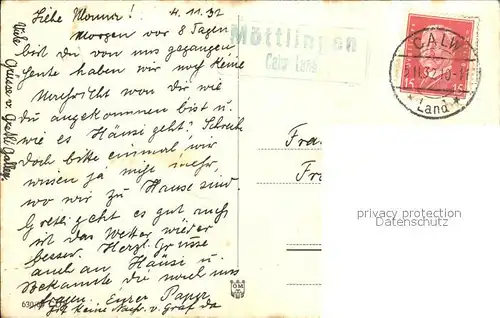 4. 11. 32
Liebe Mama!
Morgen vor 8 Tagen
bist du von uns gegangen
heute haben wir noch keine
Nachricht von dir wie
du angekommen bist u.
wie es Hänsi geht? Schreibe
doch bitte einmal wir
wissen ja nicht mehr,
wo wir zu Hause sind.
Gretli geht es gut auch
ist das Wetter wieder
besser. Herzl. Grüsse
auch an Hänsi u
Bekannte die nach uns
fragen. Euer Papa
keine Nachr. v. Graf da
Viele Grüsse v. Gretli
Möttlingen
Calw Land
CALW
11.32.10-1
* Land *
15 15
Fra
Fra
privacy protection
Datenschutz
OM